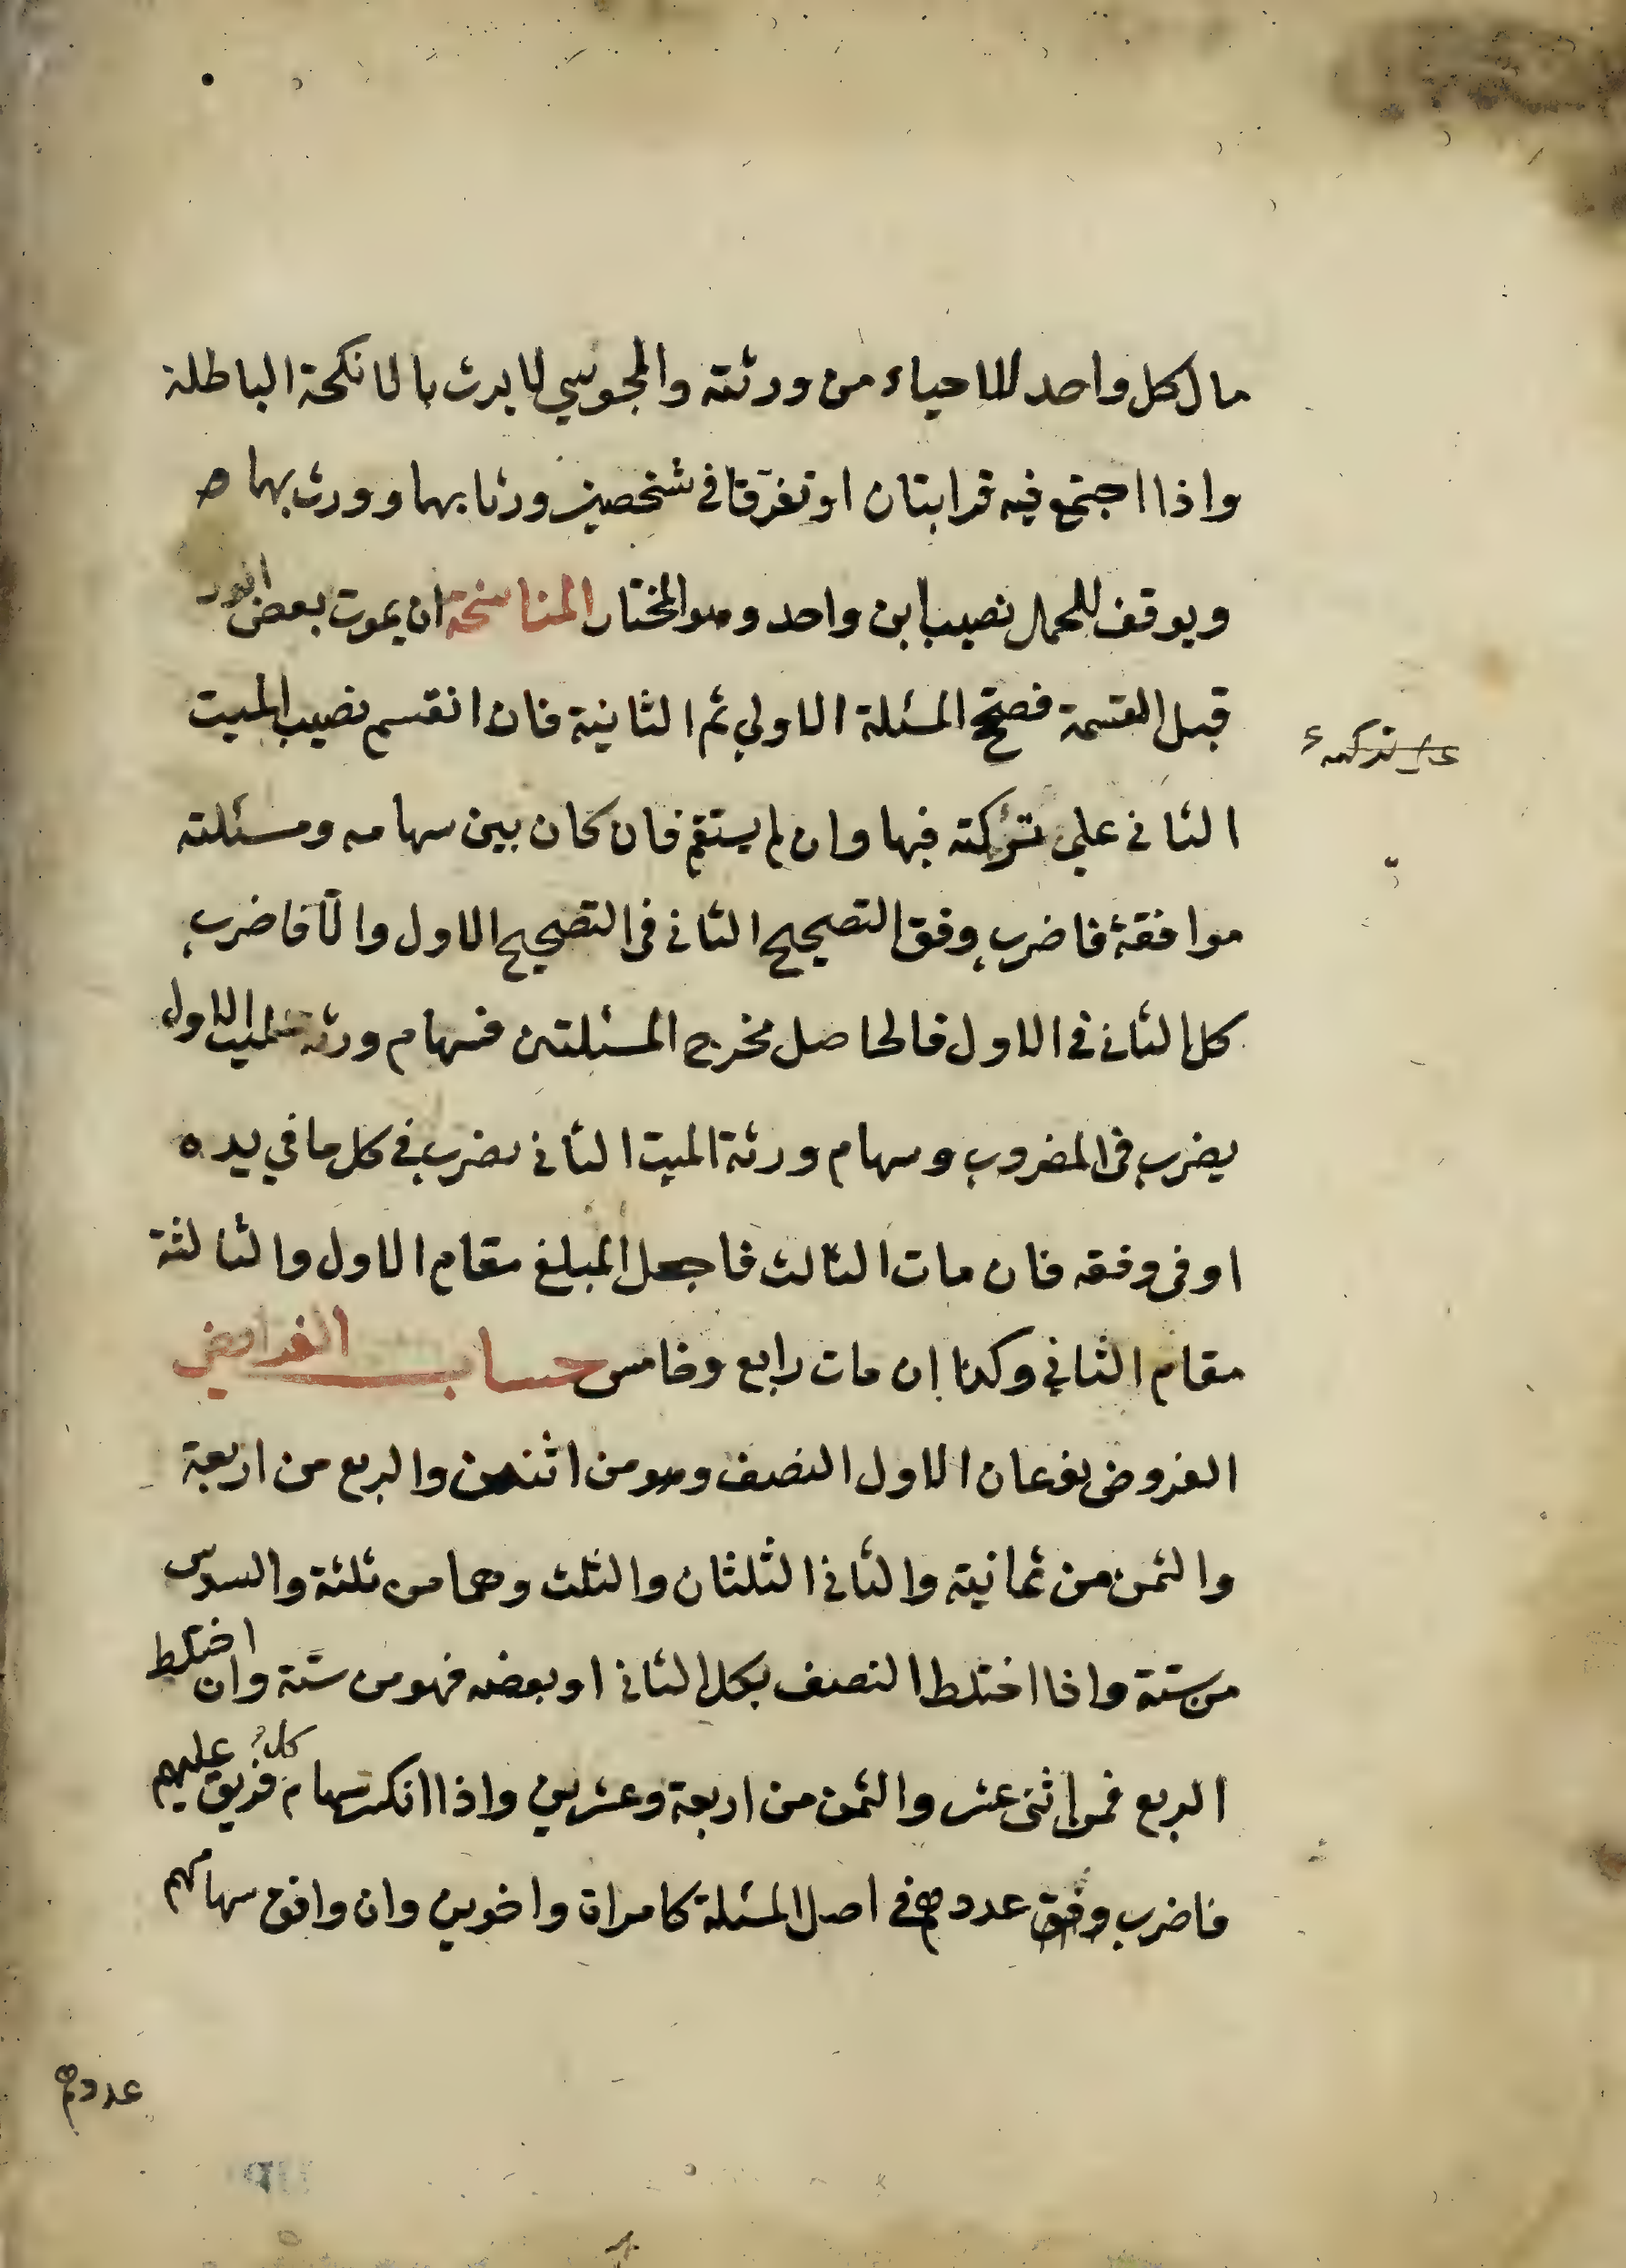 مال كل واحد للاحياء من ورثته والمجوسي لا يرث بالانكحة الباطلة
واذا اجتمع فيه قرابتان او تفرّقا في شخصين ورثا بهما وورث بهما
ويوقف للحمل نصيب ابن واحد وهو المختار المناسخة ان يموت بعض الور
قبل القسمة فصحّح المسئلة الاولي ثم الثانية فان انقسم نصيب الميت
الثاني علي تركته فبها وان لم يستقم فان كان بين سهامه ومسئلته
موافقة فاضرب وفق التصحيح الثاني في التصحيح الاول والّا فاضرب
كل الثاني في الاول فالحاصل مخرج المسئلتين فسهام ورثة الميت الاول
يضرب في المضروب وسهام ورثة الميت الثاني يضرب في كل ما في يده
او في وفقه فان مات الثالث فاجعل المبلغ مقام الاول والثالثة
مقام الثاني وكذا إن مات رابع وخامس حساب الفرايض
الفروض نوعان الاول النصف وهو من اثنين والربع من اربعة
والثمن من ثمانية والثاني الثلثان والثلث وهما من ثلثة والسدس
من ستة واذا اختلط النصف بكل الثاني او بعضه فهو من ستّة وان اختلط
الربع فمن اثني عشر والثمن من اربعة وعشرين واذا انكسر سهام كل فريق عليهم
فاضرب وفق عددهم في اصل المسئلة كامراة واخوين وان وافق سهامهم
عددهم